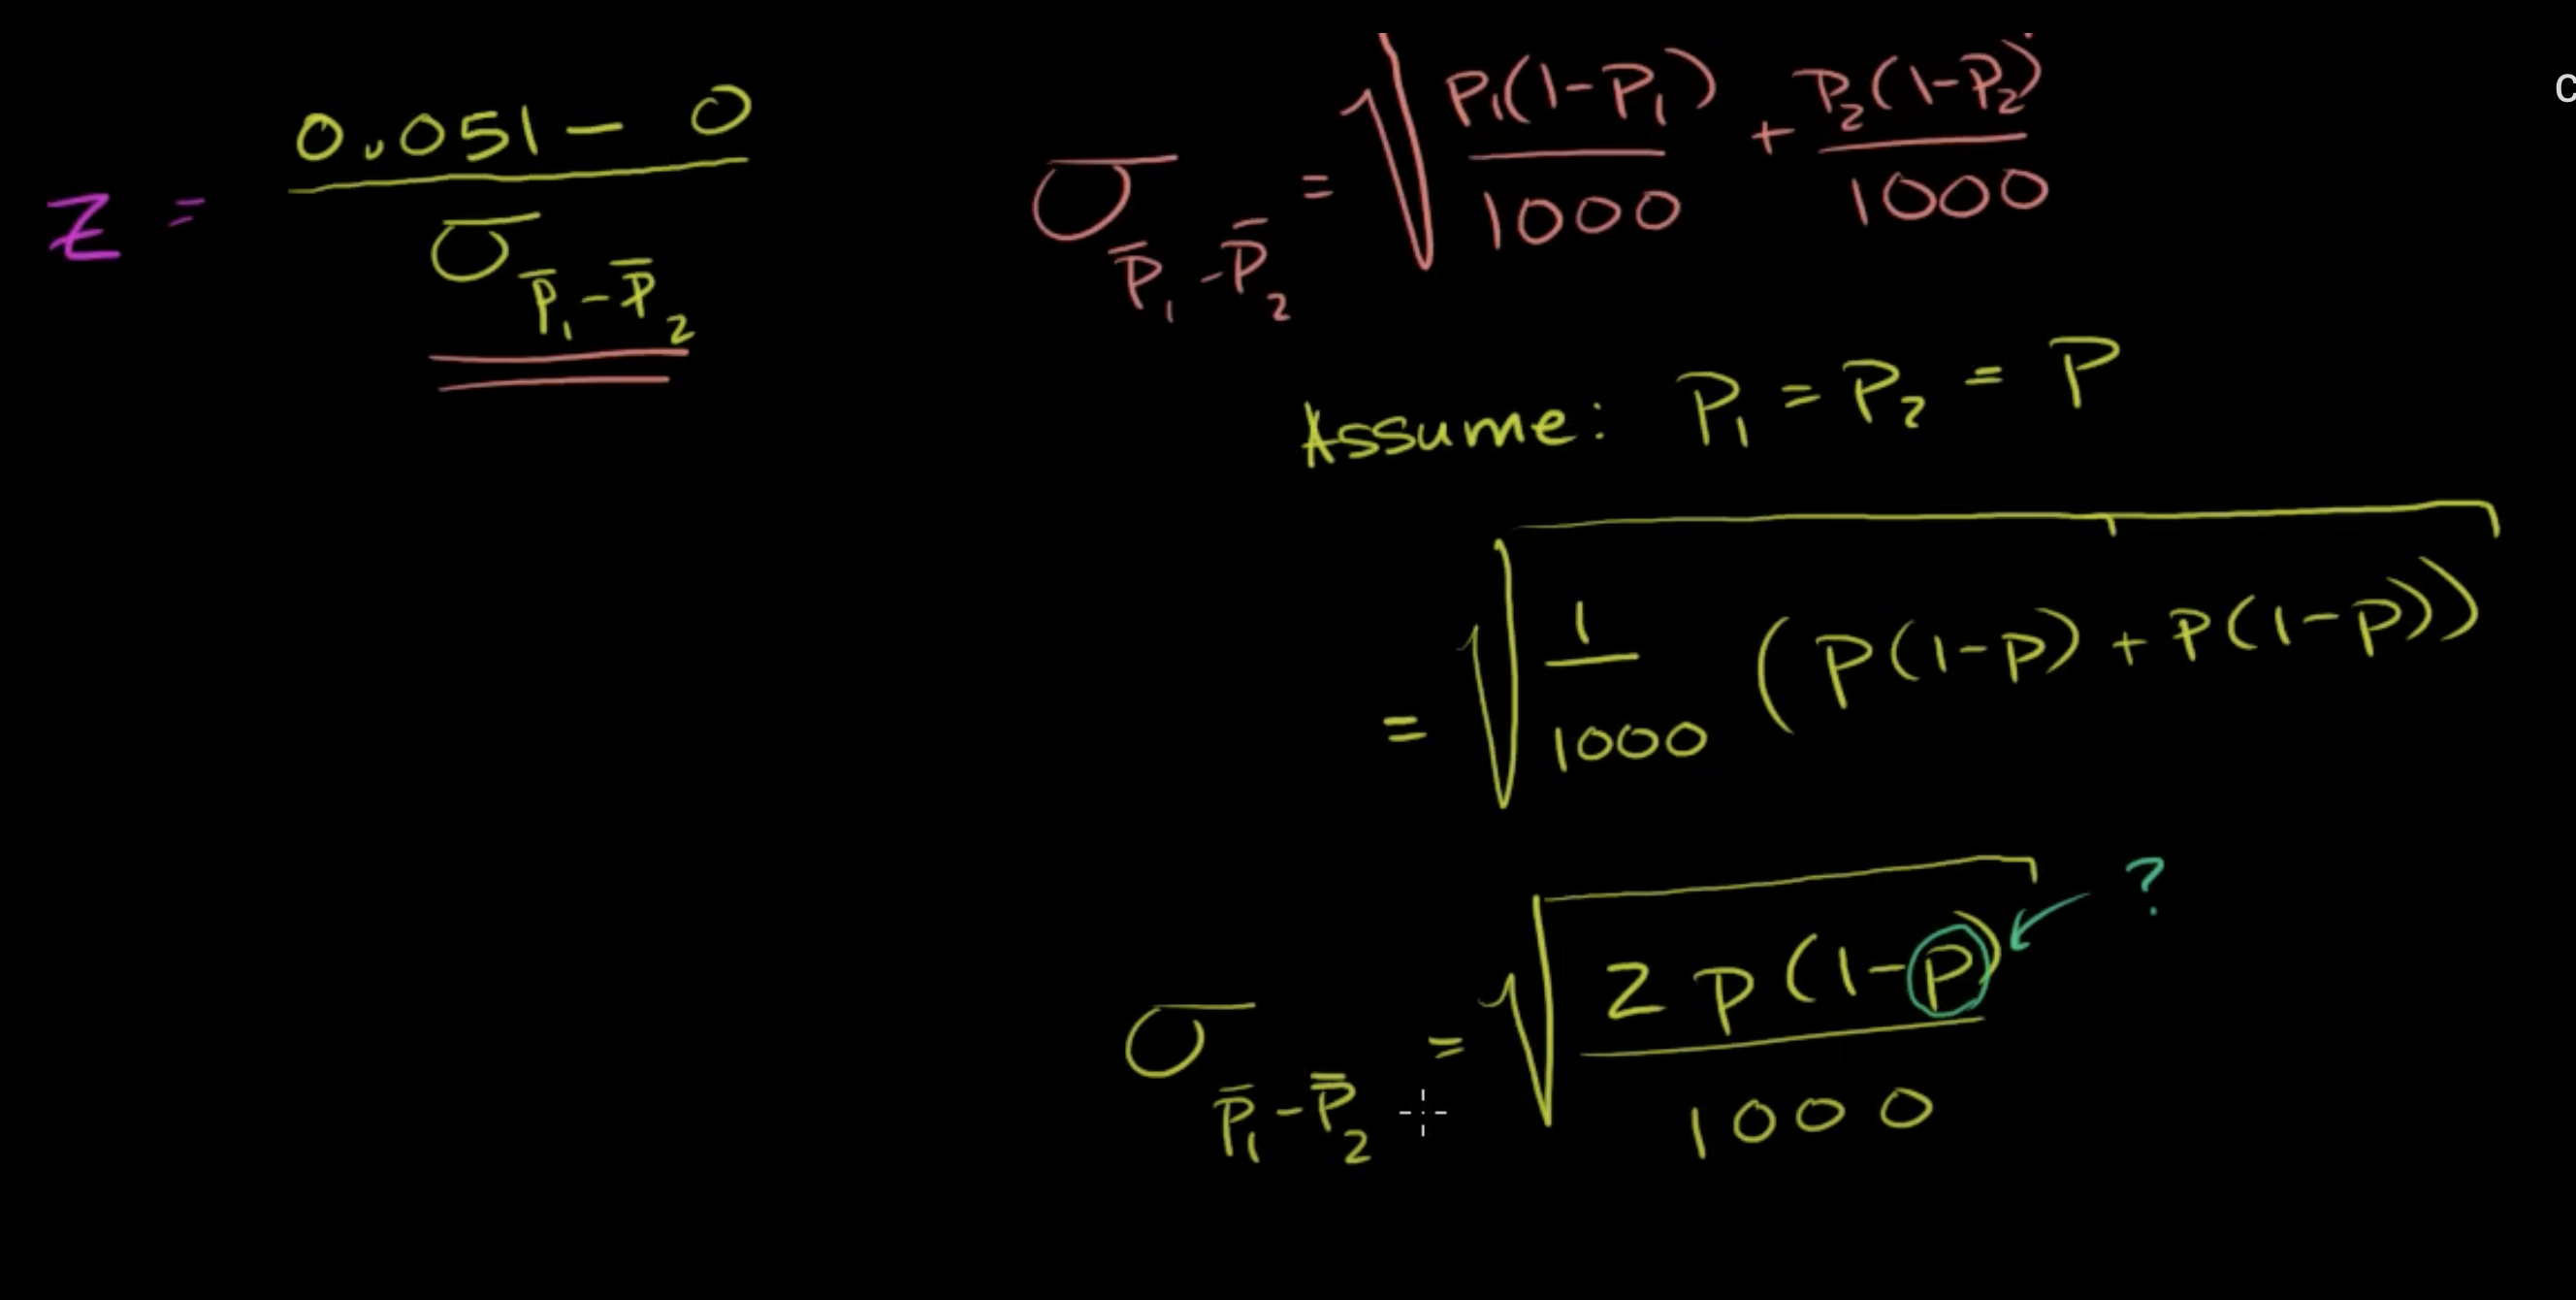 z = (0.051 - 0) / σ_(p̄₁ - p̄₂)
σ_(p̄₁ - p̄₂) = √(P₁(1-P₁)/1000 + P₂(1-P₂)/1000)
Assume: P₁ = P₂ = P
= √(1/1000 (P(1-p) + P(1-p)))
σ_(p̄₁ - p̿₂) = √(2p(1-p)/1000) ?
c